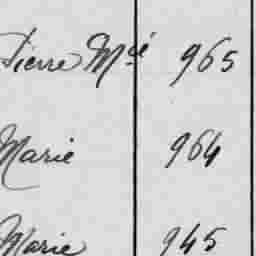 Pierre Mié 965
Marie 964
Marie 945